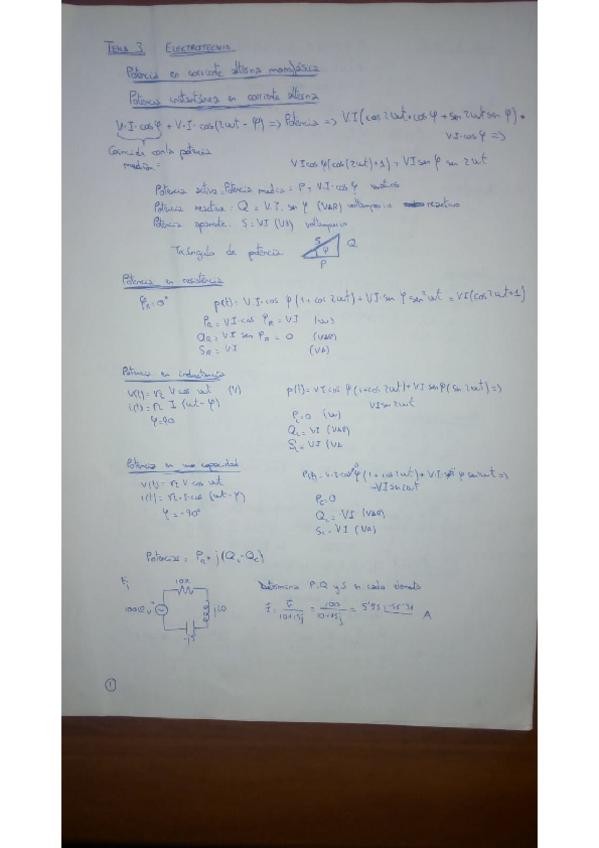 TEMA 3 ELECTROTECNIA
Potencia en corriente alterna monofásica
Potencia instantánea en corriente alterna
V·I·cosφ + V·I·cos(2wt - φ) => Potencia => V·I(cos2wt·cosφ + sen2wt senφ) +
V·I·cosφ =>
Coincide con la potencia
media =
VIcosφ(cos(2wt)+1) + VIsenφ sen 2wt
Potencia activa = Potencia media = P = V·I·cosφ
Potencia reactiva: Q = V·I·senφ (VAR) reactivo
Potencia aparente: S = VI (VA)
Triángulo de potencia
S
Q
φ
P
Potencia en resistencia
φR = 0°
p(t) = V·I·cos φ(1 + cos 2wt) + VI·sen φ sen 2wt = VI(cos2wt+1)
PR = VI·cos φR = V·I (W)
QR = VI sen φR = 0 (VAR)
SR = VI (VA)
Potencia en inductancia
V(t) = √2 V cos wt (V)
i(t) = √2 I (wt - φ)
φ = 90
p(t) = VI cos φ(1+cos2wt) + VI senφ(sen2wt) =>
VI sen 2wt
PL = 0 (W)
QL = VI (VAR)
SL = VI (VA
Potencia en una capacidad
V(t) = √2 V cos wt
i(t) = √2·I·cos (wt - φ)
φ = -90°
P(t) = V·I·cosφ(1 + cos2wt) + V·I·sen φ sen2wt =>
-VI sen2wt
PC = 0
QC = -VI (VAR)
SC = VI (VA)
Potencias = PR + j(QL - QC)
Ej
10Ω
100∠0 V
-j5
Determina P, Q y S en cada elemento
10+15j
10+15j
A
1